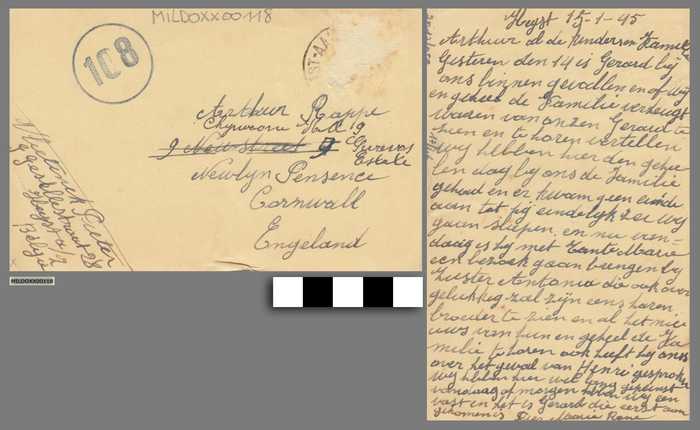 MILDOXX00118
108
ST-AA
Arthur Rappe
Chywoone Hill 19
9 New Street 9 Gwavas
Estate
Newlyn Pensence
Cornwall
Engeland
Wittinck Pieter
Heyst a/z
België
MILDOXX00118
Heyst 15-1-45
Arthur al de kinderen Kamel
Gisteren den 14 is Gerard bij
ons binnen gevallen en of wij
en geheel de Familie verheugt
waren van onzen Gerard te
zien en te horen vertellen
wij hebben hier den gehe
len dag bij ons de Familie
gehad en er kwam geen einde
aan tot hij eindelijk zei wij
gaan slapen, en nu van-
daag is hij met Tante Marie
een bezoek gaan brengen bij
Zuster Antonia die ook over
gelukkig zal zijn eens haren
broeder te zien en al het nie
uws van hun en geheel de Fa
milie te horen ook heeft hij ons
over het geval van Henri gesproken
wij hebben hier wel lang gepeinst
vandaag of morgen hebben wij een
vast en het is Gerard die eerst aan
gekomen is Marie René